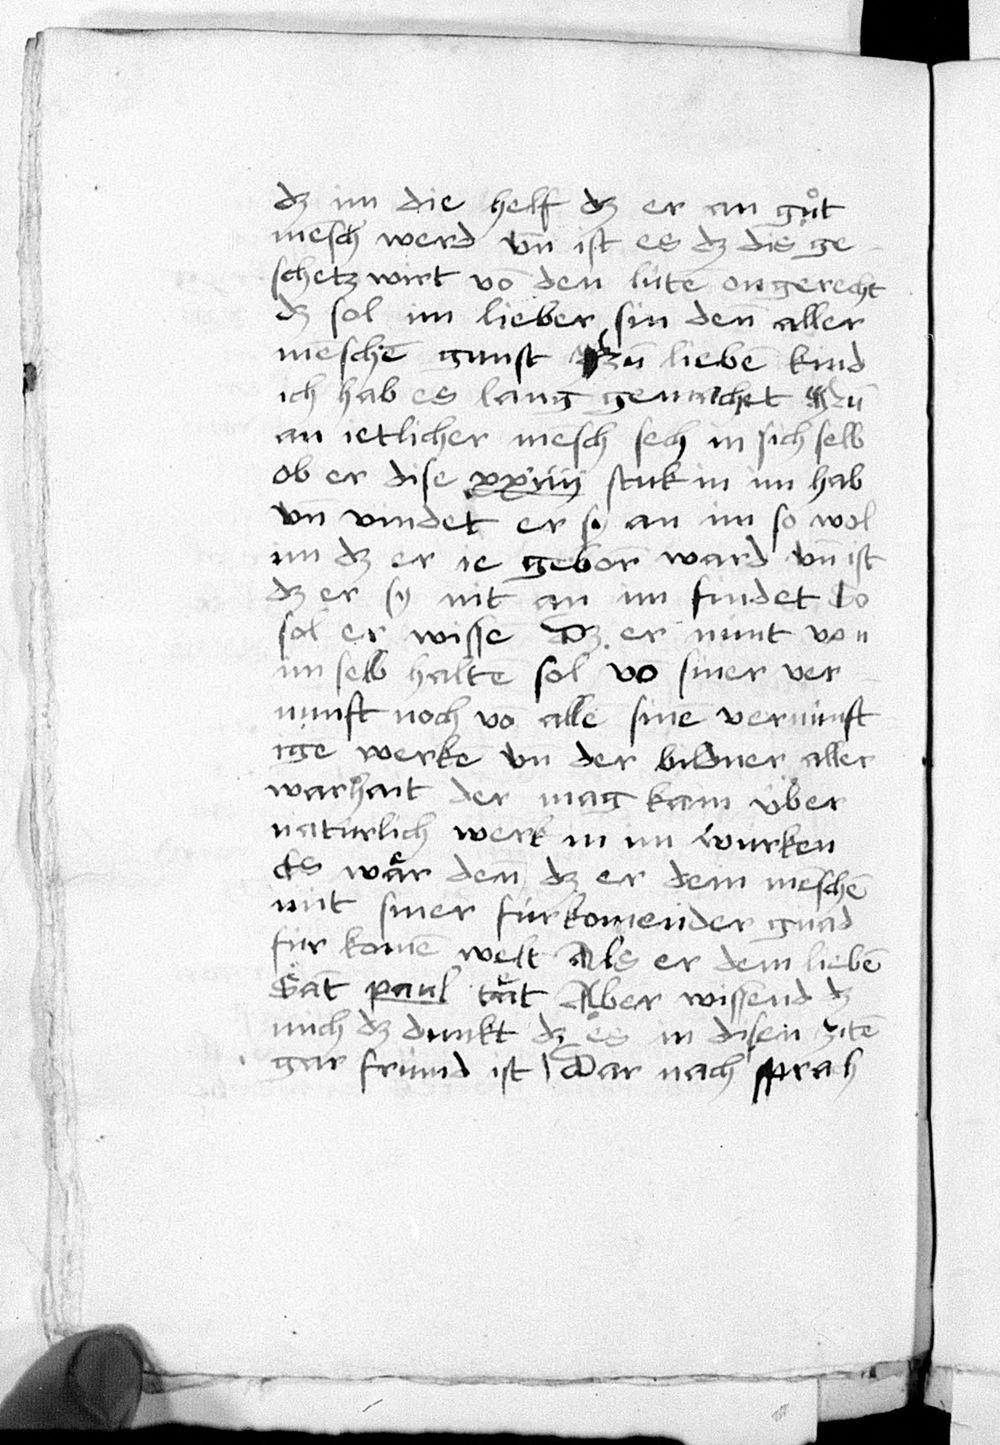 dz im die helf dz er an guͦt
mēsch werd vn̄ ist es dz dis ge
schetz wirt vō den lúte ongerecht
dz sol im lieber sin den̄ aller
mēschē gunst Nū liebē kind
ich hab es lang gemachet Nū
an ietlicher mēsch sech in sich selb
ob er dise xxiiij stuk in im hab
vn̄ vindet er sy an im so wol
im dz er ie geborn̄ ward vn̄ ist
dz er sy nit an im findet so
sol er wisse dz er nunt von
im selb haltē sol vō siner ver
nunft noch vō allē sinē vernunft
igē werkē vn der bildner aller
warhait der mag kain úber
naturlich werk in im wúrken
Es waͤr den̄ dz er dem mēschē
mit siner fúrkomender gnad
fúr komē welt Als er dem liebē
Sāt paul taͤt Aber wissend dz
mich dz dunkt dz es in disen zitē
gar frúmd ist Dar nach sprah